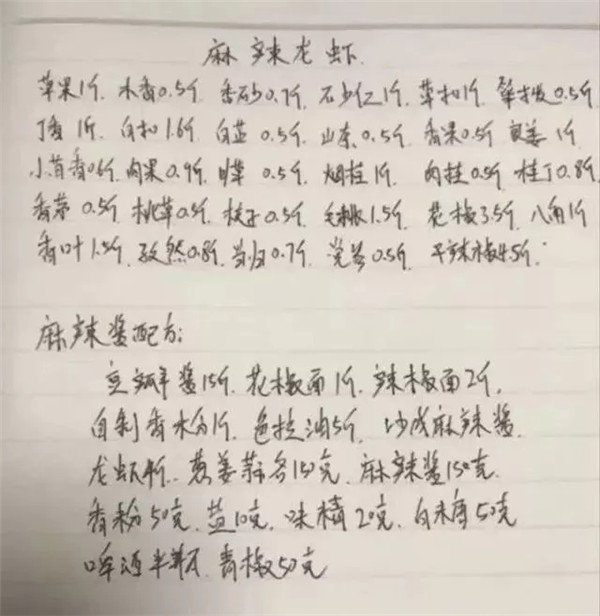 麻辣龙虾
草果1斤 木香0.5斤 香砂0.7斤 石少仁1斤 草扣1斤 荜拨0.5斤
丁香1斤 白扣1.6斤 白芷0.5斤 山奈0.5斤 香果0.5斤 良姜1斤
小茴香0.6斤 肉果0.9斤 甘草0.5斤 烟桂1斤 肉桂0.5斤 桂丁0.8斤
香茅0.5斤 桃草0.5斤 枝子0.5斤 毛桃1.5斤 花椒3.5斤 八角1斤
香叶1.5斤 孜然0.8斤 当归0.7斤 党参0.5斤 干辣椒4.5斤
麻辣酱配方:
豆瓣酱15斤 花椒面1斤 辣椒面2斤,
自制香料1斤 色拉油5斤 炒成麻辣酱
龙虾4斤 葱姜蒜各150克 麻辣酱150克
香粉50克 盐10克 味精20克 白糖50克
啤酒半瓶 青椒50克